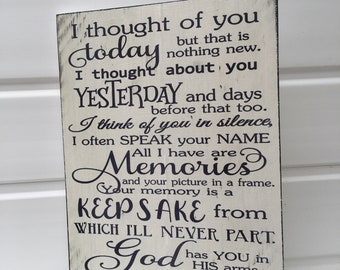 I thought of you
today but that is
nothing new.
I thought about you
YESTERDAY and days
before that too.
I think of you in silence,
I often SPEAK your NAME
All I have are
Memories
and your picture in a frame.
Your memory is a
KEEPSAKE from
WHICH I'LL NEVER PART.
God has YOU in
HIS arms